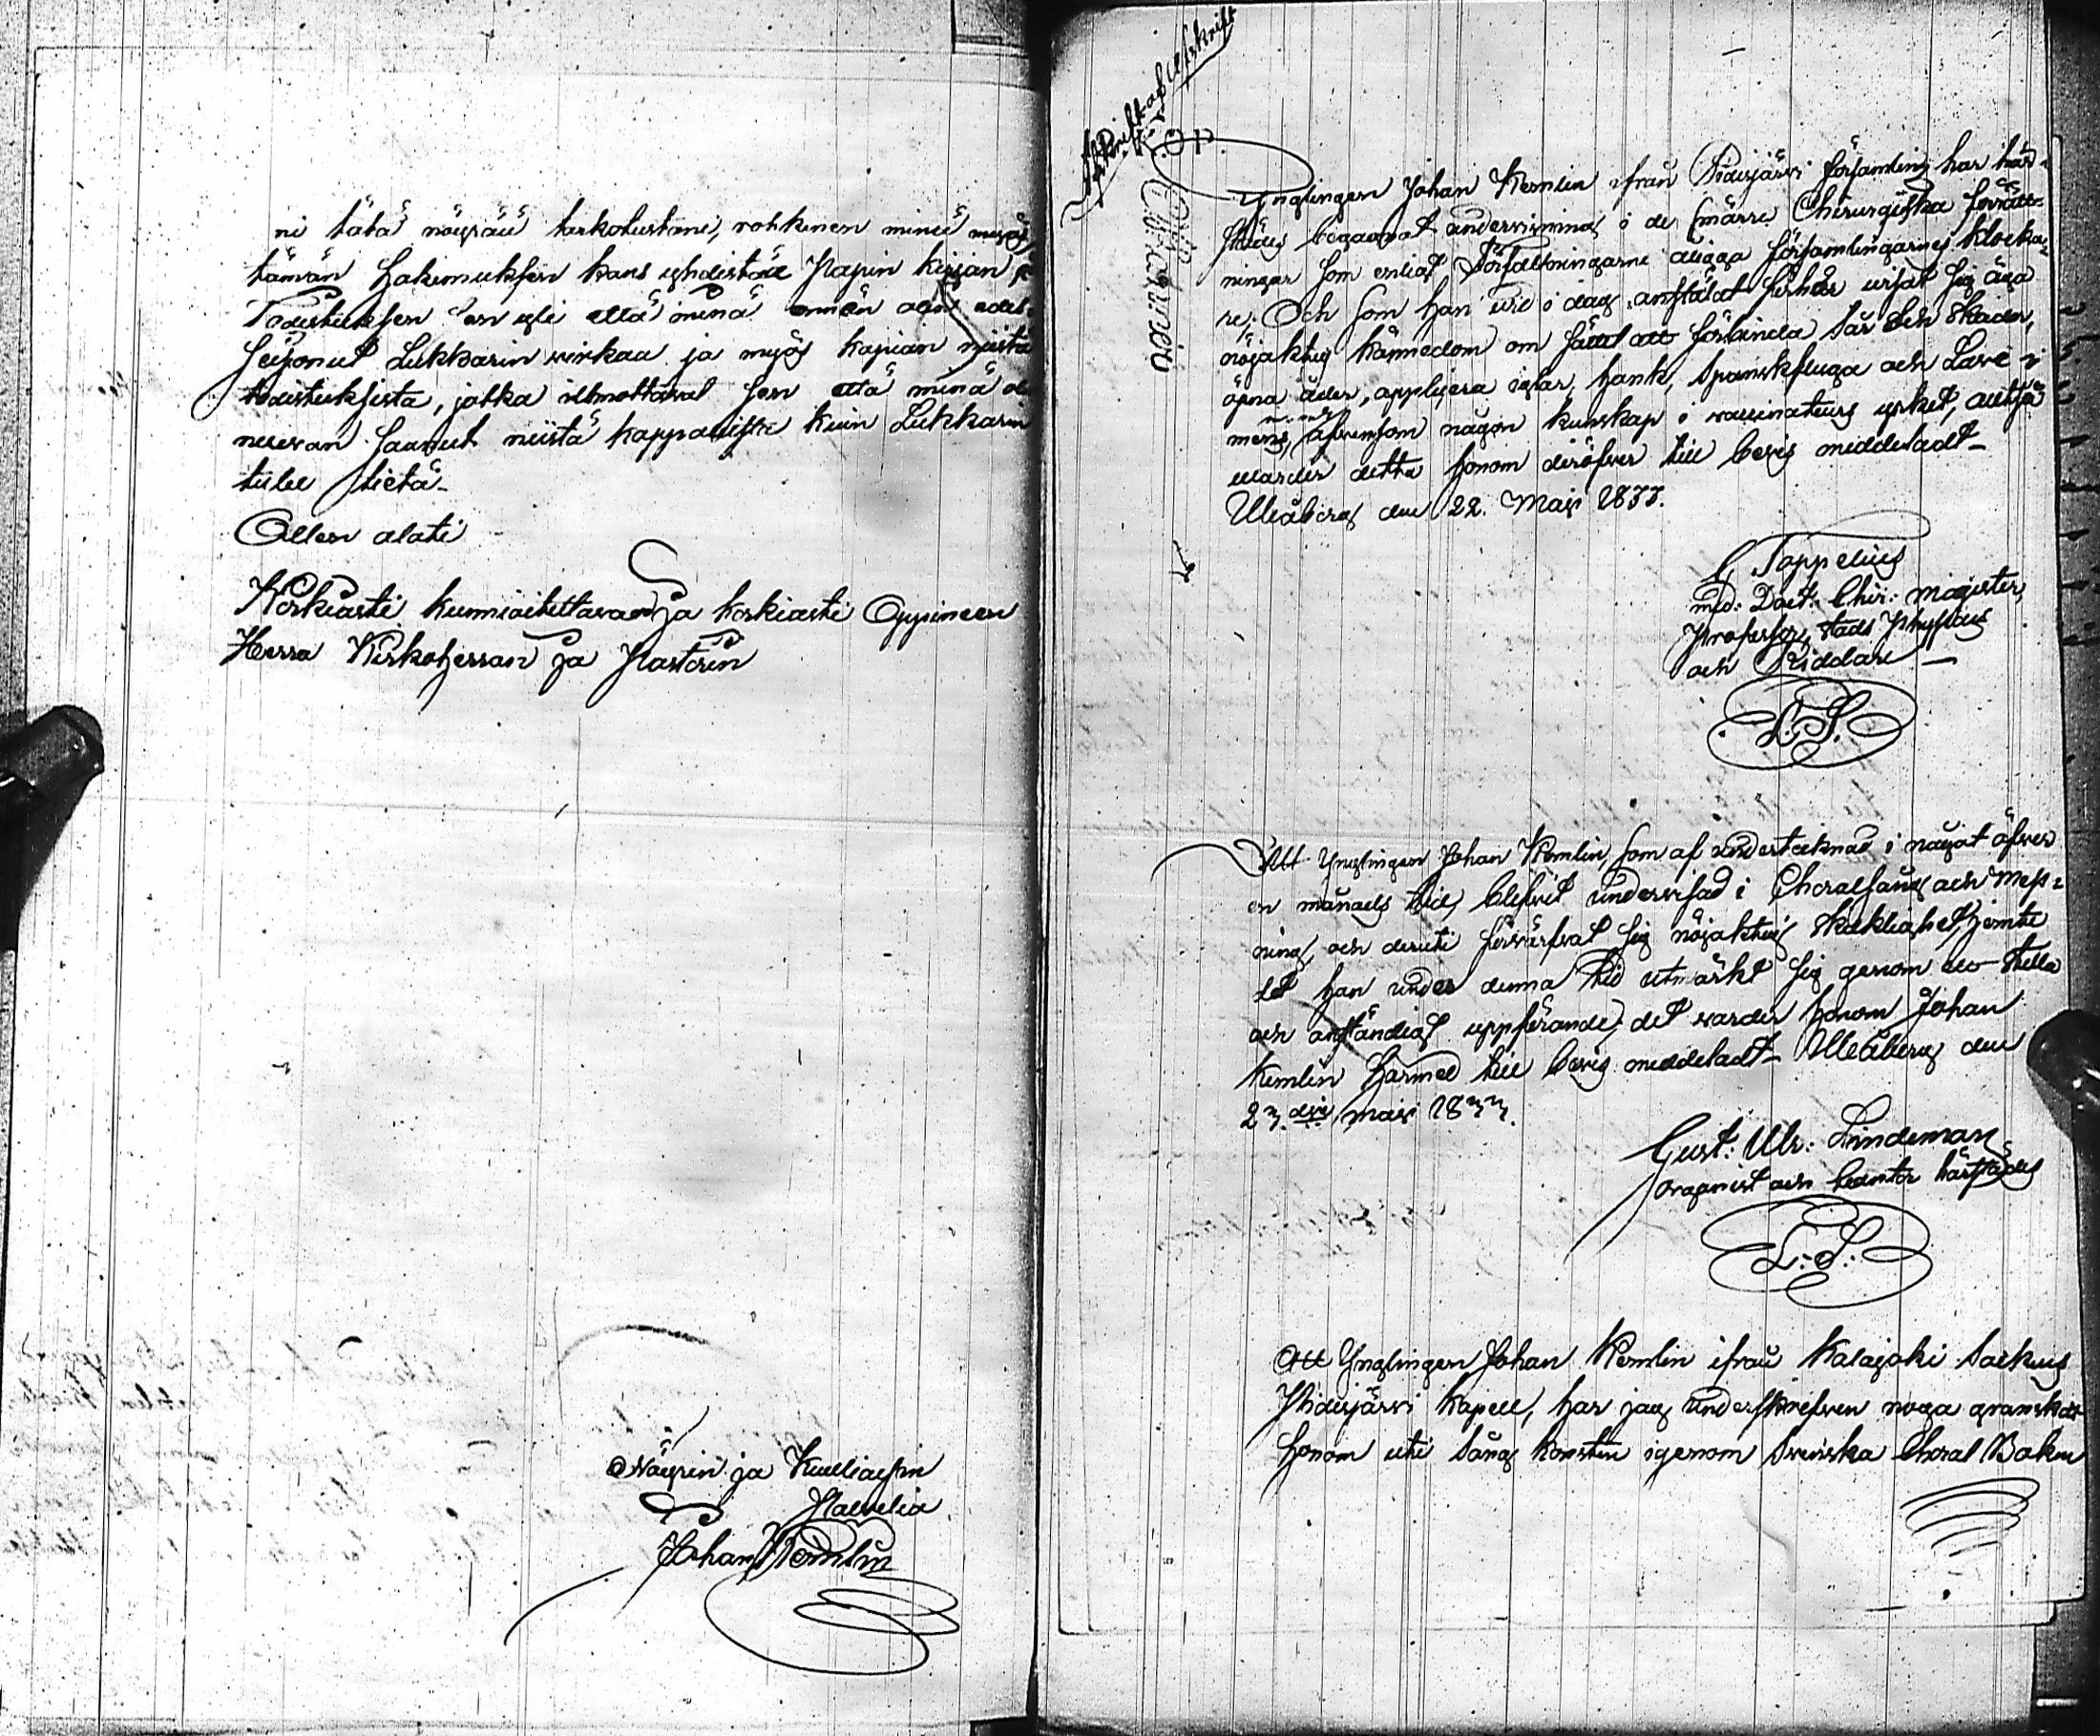 ni tätä nöyrää tarkotustani, rohkenen minä myös
tämän Hakemuksen kans yhdistää Papin kirjan
Todistuksen
seisonut Lukkarin virkaa ja myös kapian niistä
todistuksista, jotka ilmottavat sen että minä ole
neuvan saanut niistä kappaleista kuin Lukkarin
tulee tietä
Ollen alati
Korkiasti kunnioitettavan ja korkiasti Oppineen
Herra Kirkoherran ja Pastorin
Nöyrin ja Kuuliaisin
Palvelia
Johan Kemlin
Afskrift af Afskrift
Ynglingen Johan Kemlin ifrån Pidisjärvi församling har här-
städes begagnat undervisning i de smärre Chirurgiska förrätt-
ningar som enligt Författningarne åligga församlingarnes klocka-
re; Och som han vid i dag anstäldt förhör visat sig äga
nöjaktig kännedom om sättet att förbinda sår och skador,
öpna åder, applicera iglar, hank, Spanskfluga och Lave-
mens, äfvensom någon kunskap i vaccinateurs yrket, altså
warder detta honom deröfver till bevis meddeladt
Uleåborg den 22. Maji 1833.
Toppelius
Med: Doct: Chir: Magister,
Professor, Stads Physicus
och Riddare
L.S.
Att Ynglingen Johan Kemlin, som af undertecknad i något öfver
en månads tid, blifvit undervisad i Choralsång och Mess-
ning, och deruti förvärfvat sig nöjaktig skicklighet, jemte
det han under denna tid utmärkt sig genom ett stilla
och anständigt uppförande; det varder honom Johan
Kemlin härmed till bevis meddeladt. Uleåborg den
23. dje maji 1833.
Gust: Ulr: Lindeman
Organist och Cantor härstädes
L.S.
Att Ynglingen Johan Kemlin ifrån Kalajoki Sockns
Pidisjärvi Kapell, har jag underskrefven noga granskat
honom uti Sång konsten igenom Svenska Choral Boken